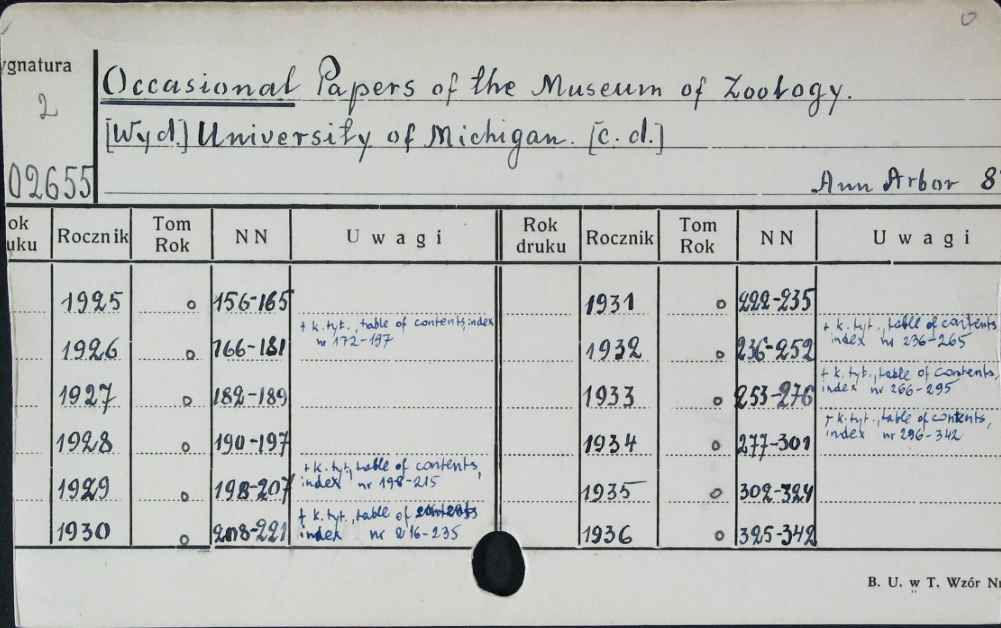 0
ygnatura
2
02655
Occasional Papers of the Museum of Zoology.
[Wyd.] University of Michigan. [c. d.]
Ann Arbor 8°
ok
uku Rocznik Tom Rok NN Uwagi Rok druku Rocznik Tom Rok NN Uwagi
1925 0 156-165 1931 0 222-235
+ k. tyt., table of contents, index nr 172-197 + k. tyt., table of contents, index nr 236-265
1926 0 166-181 1932 0 236-252
+ k. tyt., table of contents, index nr 266-295
1927 0 182-189 1933 0 253-276
+ k. tyt., table of contents, index nr 296-342
1928 0 190-197 1934 0 277-301
+ k. tyt., table of contents, index nr 198-215
1929 0 198-207 1935 0 302-324
+ k. tyt., table of contents index nr 216-235
1930 0 208-221 1936 0 325-342
B. U. w T. Wzór Nr